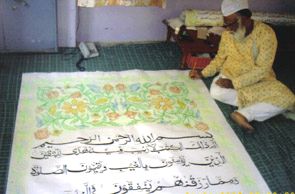 بسم الله الرحمن الرحيم
الم ذلك الكتاب لا ريب فيه هدى للمتقين
الذين يؤمنون بالغيب ويقيمون الصلاة
ومما رزقنهم ينفقون